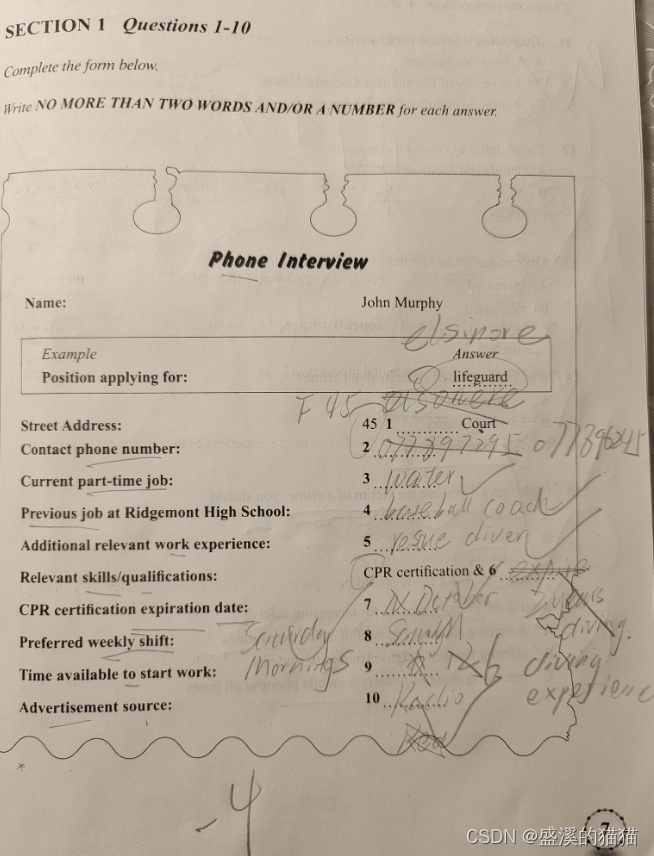 SECTION 1 Questions 1-10
Complete the form below.
Write NO MORE THAN TWO WORDS AND/OR A NUMBER for each answer.
Phone Interview
Name: John Murphy
elsinore
Example Answer
Position applying for: lifeguard
F 45
Street Address: 45 1 Court
Contact phone number: 2
Current part-time job: 3 water
Previous job at Ridgemont High School: 4 baseball coach
Additional relevant work experience: 5 diver
Relevant skills/qualifications: CPR certification & 6
CPR certification expiration date: 7 years
diving.
Preferred weekly shift: Saturday 8
Time available to start work: Mornings 9 6 diving
experience
Advertisement source: 10 Radio
-4
7
CSDN @盛溪的猫猫